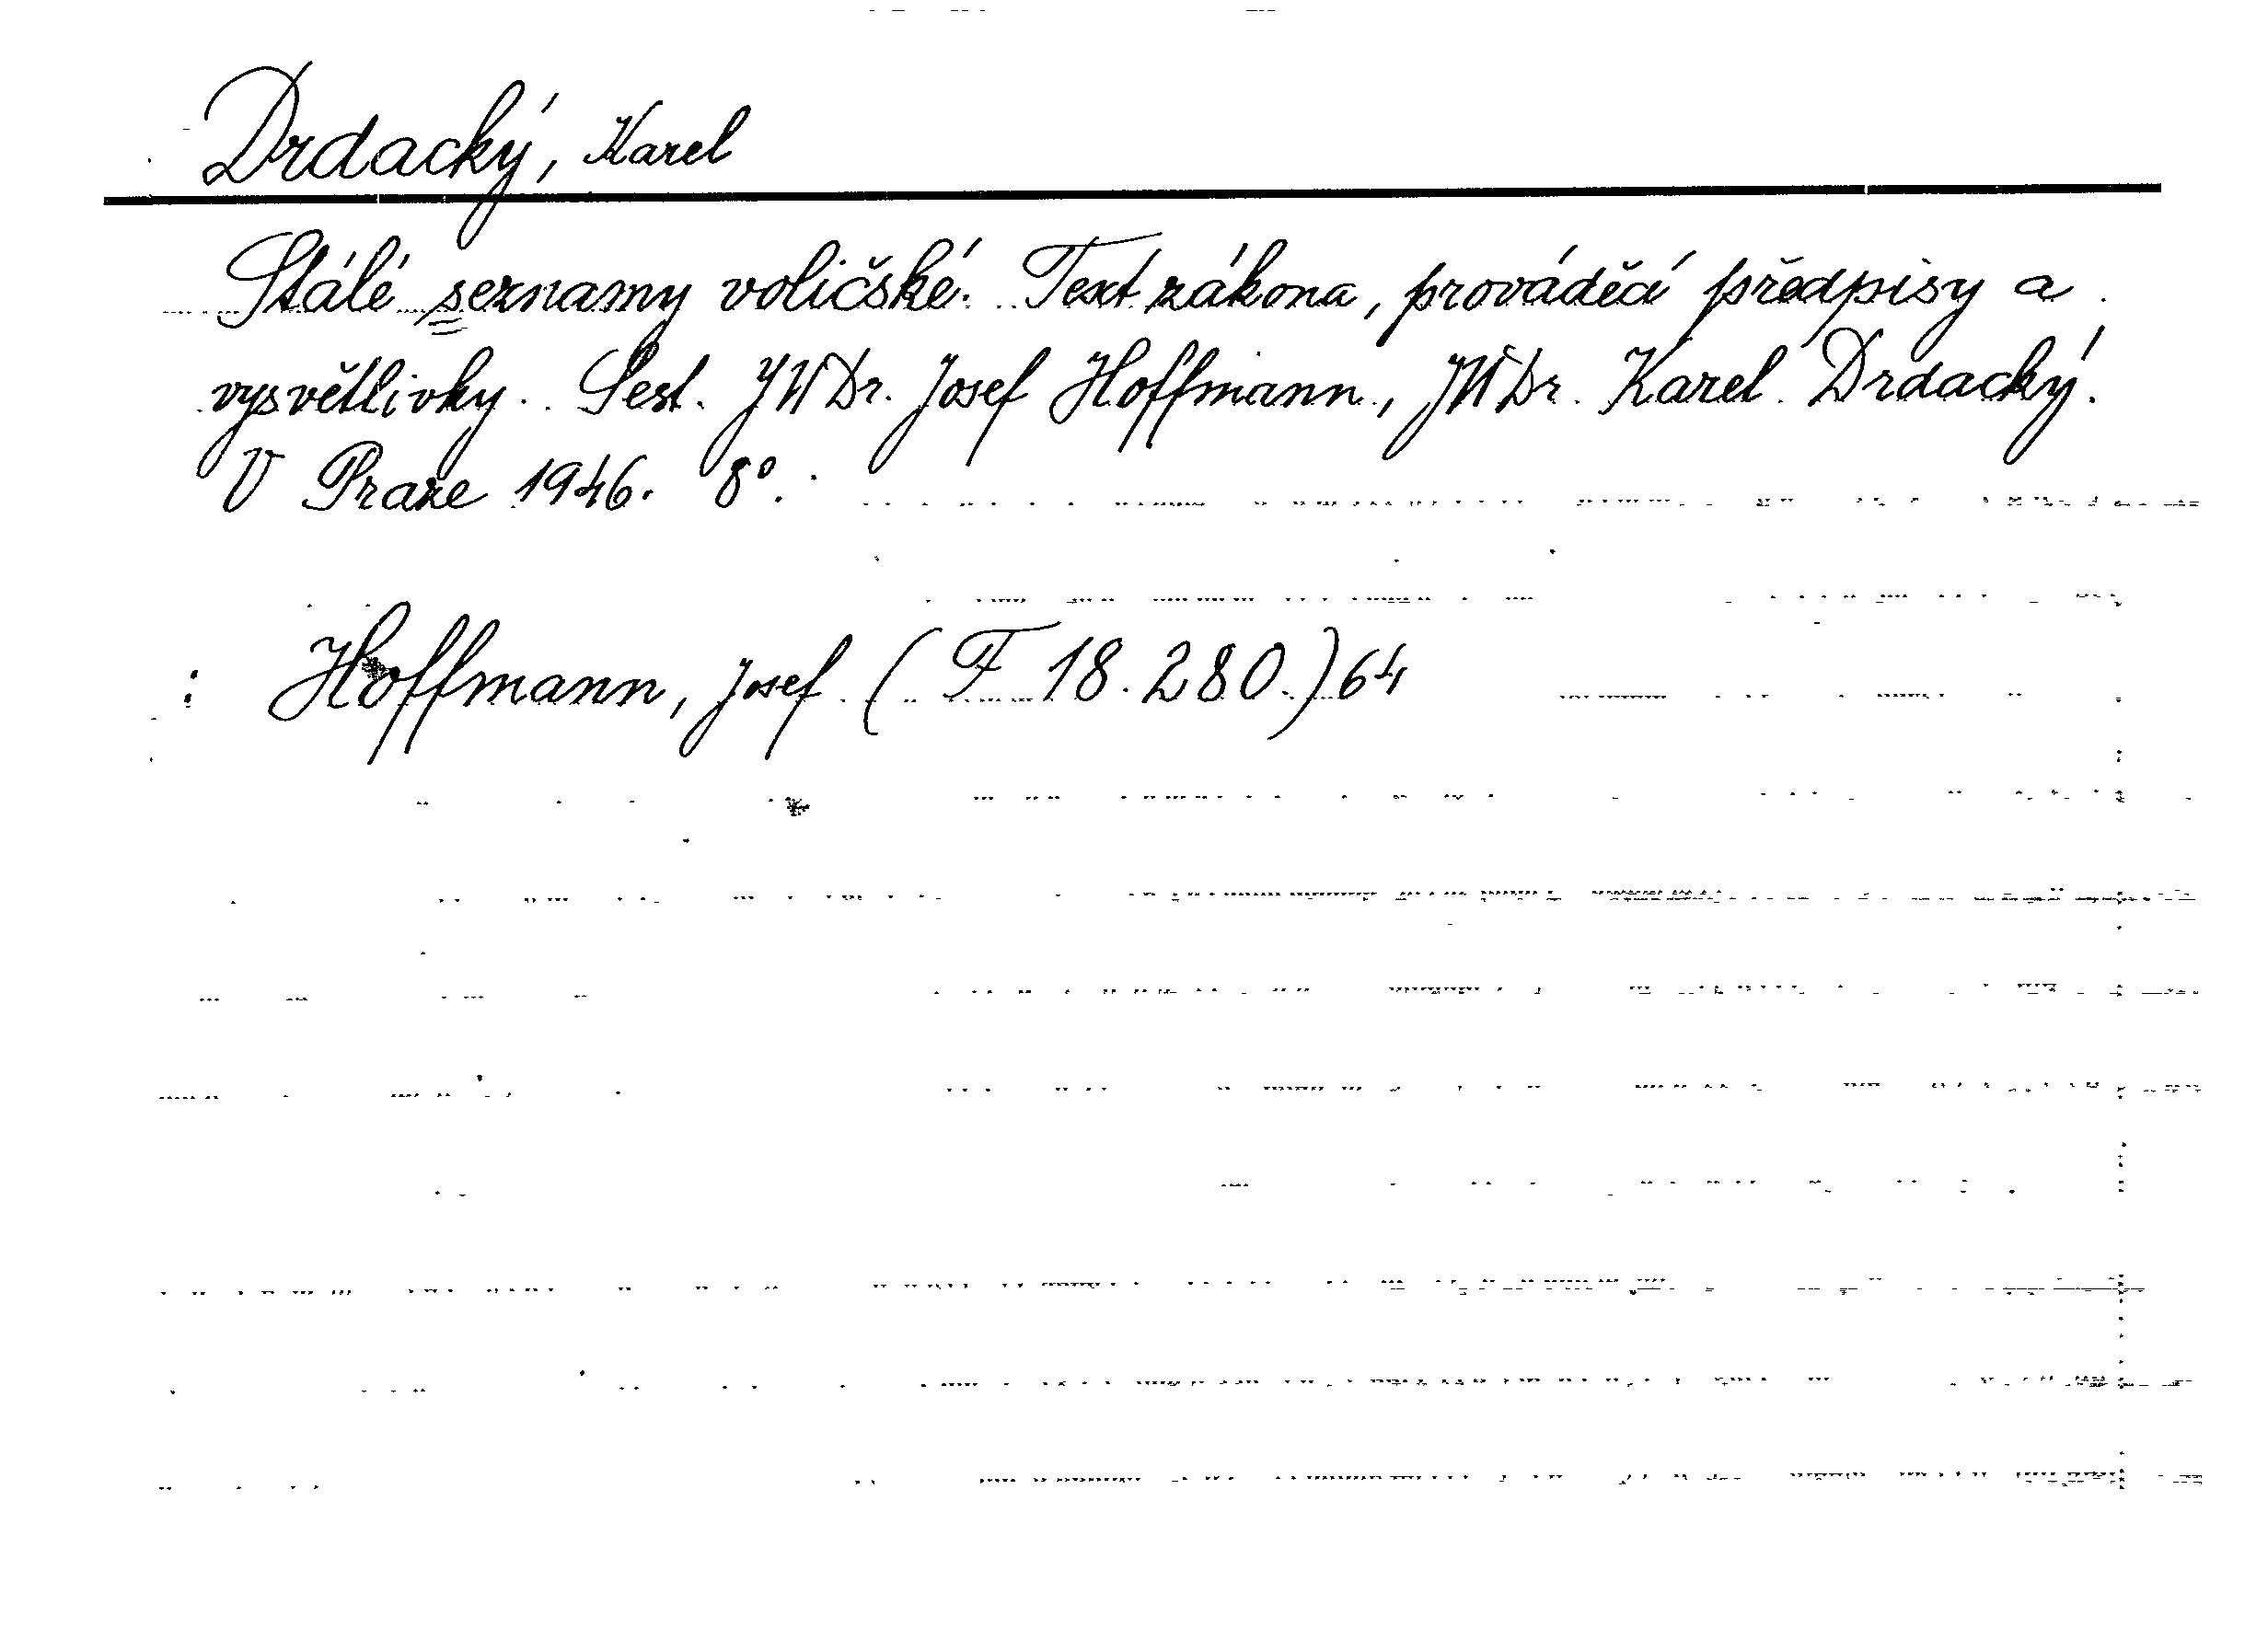 Drdacký, Karel
Stálé seznamy voličské. Text zákona, prováděcí předpisy a
vysvětlivky. Sest. JUDr. Josef Hoffmann, JUDr. Karel Drdacký.
V Praze 1946. 8°.
: Hoffmann, Josef (F 18.280.) 64